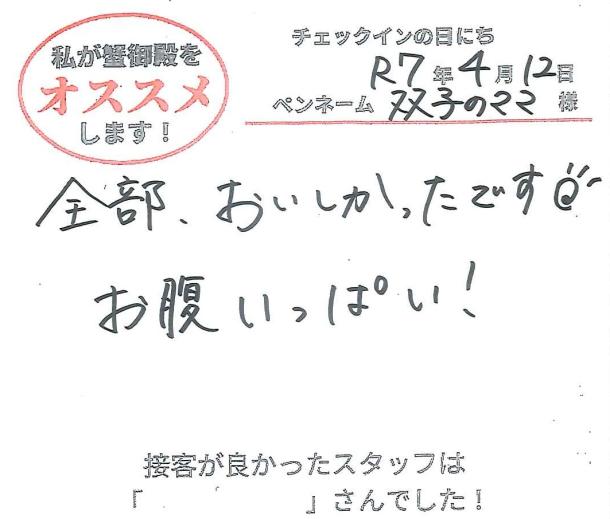 私が蟹御殿を
オススメ
します！
チェックインの日にち
R7年4月12日
ペンネーム 双子のママ 様
全部、おいしかったです
お腹いっぱい！
接客が良かったスタッフは
「 」さんでした！